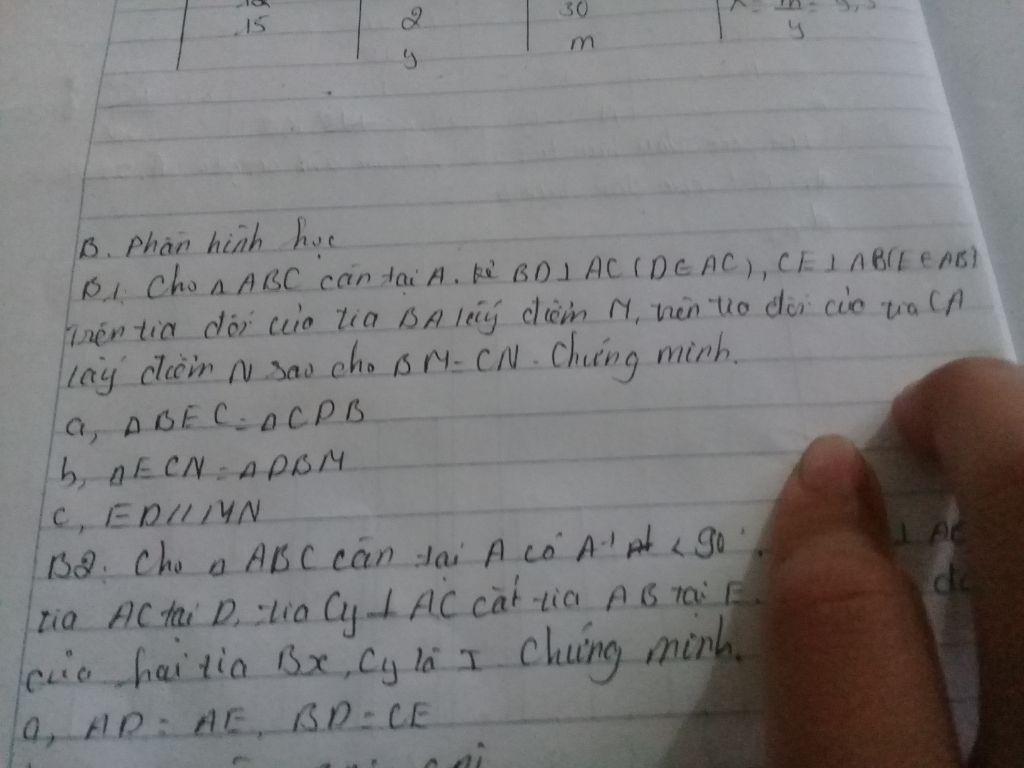 15 2 30
y m y
B. Phần hình học
B1. Cho Δ ABC cân tại A. kẻ BD⊥AC (D∈AC), CE⊥AB(E∈AB)
trên tia đối của tia BA lấy điểm M, trên tia đối của tia CA
lấy điểm N sao cho BM=CN. Chứng minh.
a, ΔBEC=ΔCDB
b, ΔECN=ΔDBM
c, ED//MN
B2. Cho Δ ABC cân tại A có < 90°. ⊥ AC
tia AC tại D, tia Cy⊥AC cắt tia AB tại E.
của hai tia Bx, Cy là I Chứng minh.
a, AD = AE, BD=CE